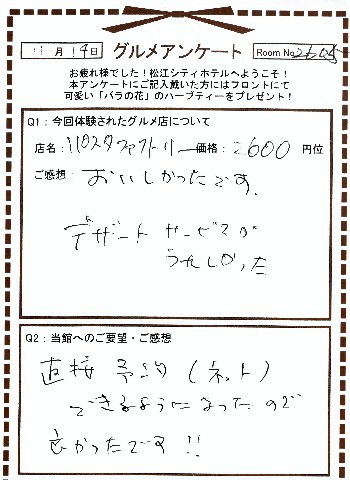 11月14日 グルメアンケート Room No 2605
お疲れ様でした！松江シティホテルへようこそ！
本アンケートにご記入戴いた方にはフロントにて
可愛い「バラの花」のハーブティーをプレゼント！
Q1：今回体験されたグルメ店について
店名：パスタファクトリー 価格：2600円位
ご感想：おいしかったです。
デザートサービスが
うれしかった
Q2：当館へのご要望・ご感想
直接予約（ネット）
できるようになったので
良かったです!!